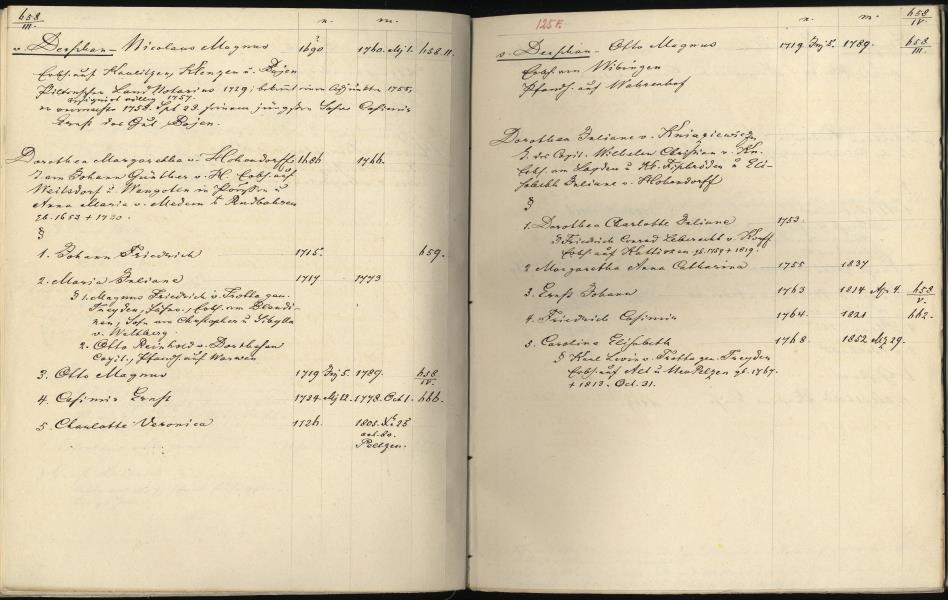 658
III.
n. m.
v. Derschau - Nicolaus Magnus 1690 ? 1760. Mz 1. 658 II.
Erbh. auf Kaulitzen, Klenzen u. Bojen
Piltenscher Land Notarius 1729; bekommt einen Adjunkten 1755,
resignirt völlig 1757.
er vermachte 1758. Spt 23. seinem jüngsten Sohne Casimir
Ernst das Gut Bojen.
Dorothea Margaretha v. Hohendorff 1686 1766.
T. von Johann Günther v. H. Erbh. auf
Weilsdorf u Wengoten in u
Anna Maria v. Medem a Rudbahren
gb. 1653 + 1720.
§
1. Johann Friedrich 1715. 659.
2. Maria Juliane 1717 1773
§ 1. Magnus Friedrich v. Trotta gen.
Treyden, Erbh. von
Sohn von Christopher u Sibylla
v.
2. Otto Reinhold v. Dorthesen
Capit., Pfandh. auf Warwen
3. Otto Magnus 1719 Jnj 5. 1789. 658
IV.
4. Casimir Ernst 1724. Mz 12. 1778. Oct 1. 666.
5. Charlotte Veronica 1726. 1805. Xbr 25
aet. 80.
Peltzen.
125 F.
n. m. 658
IV.
v. Derschau - Otto Magnus 1719. Jnj 5. 1789. 658
III.
Erbh. von Wibingen
Pfandh. auf Wahrenhof
Dorothea Juliane v. Kniagiewicz,
T. des Capit. Wilhelm Christian v. Kn.
Erbh. von u u Eli-
sabeth Juliane v. Hohendorff
§
1. Dorothea Charlotte Juliane 1753.
§ Friedrich Conrad Leberecht v. Korff
Erbh. auf gb. 1759 + 1819.
2 Margaretha Anna Catharina 1755 1837
3. Ernst Johann 1763 1814 Apr. 4. 658
V.
4. Friedrich Casimir 1764. 1821 662.
5. Caroline Elisabeth 1768 1852 Mz 29.
§ Karl Levin v. Trotta gen. Treyden
Erbh. auf Alt u. Neu Pelzen gb. 1767.
+ 1813. Oct. 31.